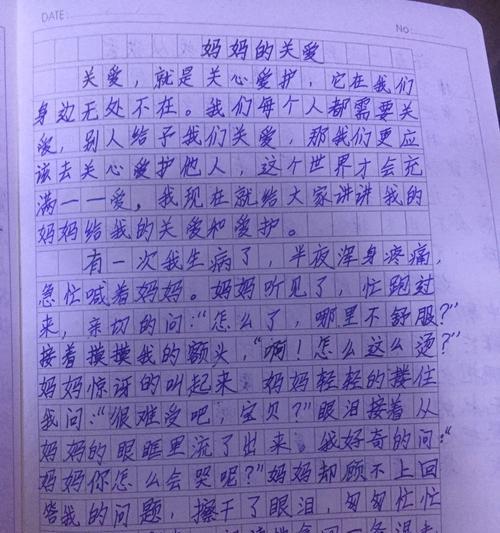 DATE:
No:
妈妈的关爱
关爱，就是关心爱护，它在我们
身边无处不在。我们每个人都需要关
爱，别人给予我们关爱，那我们更应
该去关心爱护他人，这个世界才会充
满一一爱。我现在就给大家讲讲我的
妈妈给我的关爱和爱护。
有一次我生病了，半夜浑身疼痛，
急忙喊着妈妈。妈妈听见了，忙跑过
来，亲切的问：“怎么了，哪里不舒服？”
接着摸摸我的额头，“啊！怎么这么烫？”
妈妈惊讶的叫起来。妈妈轻轻的搂住
我问：“很难受吧，宝贝？”眼泪接着从
妈妈的眼眶里流了出来。我好奇的问：“
妈妈你怎么会哭呢？”妈妈却顾不上回
答我的问题，擦干了眼泪，匆匆忙忙